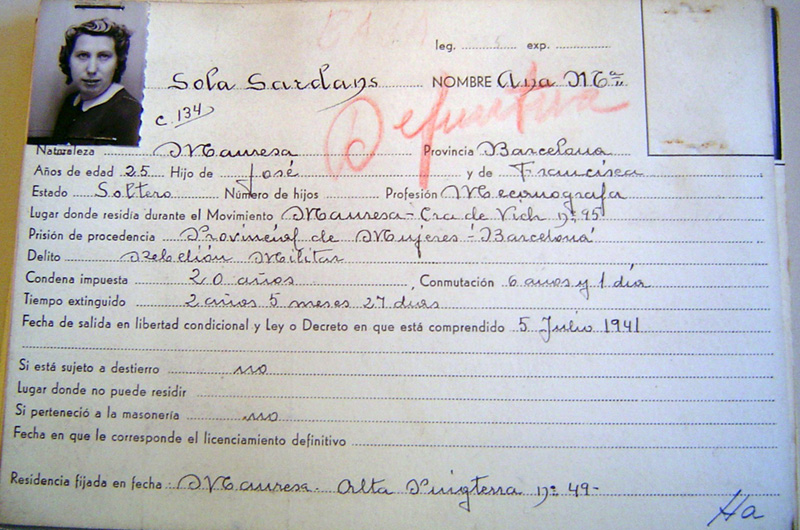 leg. exp.
Sola Sardans NOMBRE Ana Mª
c. 134
Definitiva
Naturaleza Manresa Provincia Barcelona
Años de edad 25 Hijo de José y de Francisca
Estado Soltero Número de hijos Profesión Meconografa
Lugar donde residía durante el Movimiento Manresa - Cra de Vich nº 95
Prisión de procedencia Provincial de Mujeres - Barcelona
Delito Rebelión Militar
Condena impuesta 20 años, Conmutación 6 años y 1 día
Tiempo extinguido 2 años 5 meses 27 dias
Fecha de salida en libertad condicional y Ley o Decreto en que está comprendido 5 Julio 1941
Si está sujeto a destierro no
Lugar donde no puede residir
Si perteneció a la masonería no
Fecha en que le corresponde el licenciamiento definitivo
Residencia fijada en fecha: Manresa. Alta Puigterra nº 49-
Ha